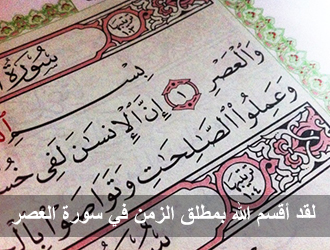 سورة
بسم
والعصر ١ إن الإنسن لفى خسر
وعملوا الصلحت وتواصوا بال
لقد أقسم الله بمطلق الزمن في سورة العصر